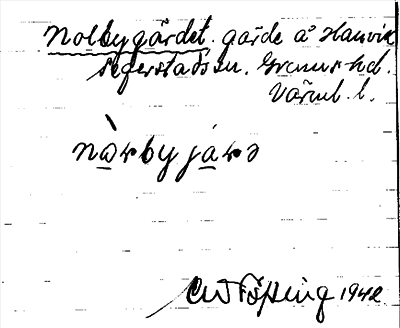 Nolbygärdet. gärde å Hanvik
Segerstads sn. Grums hd.
Värml. l.
nòrbyjárə
1942